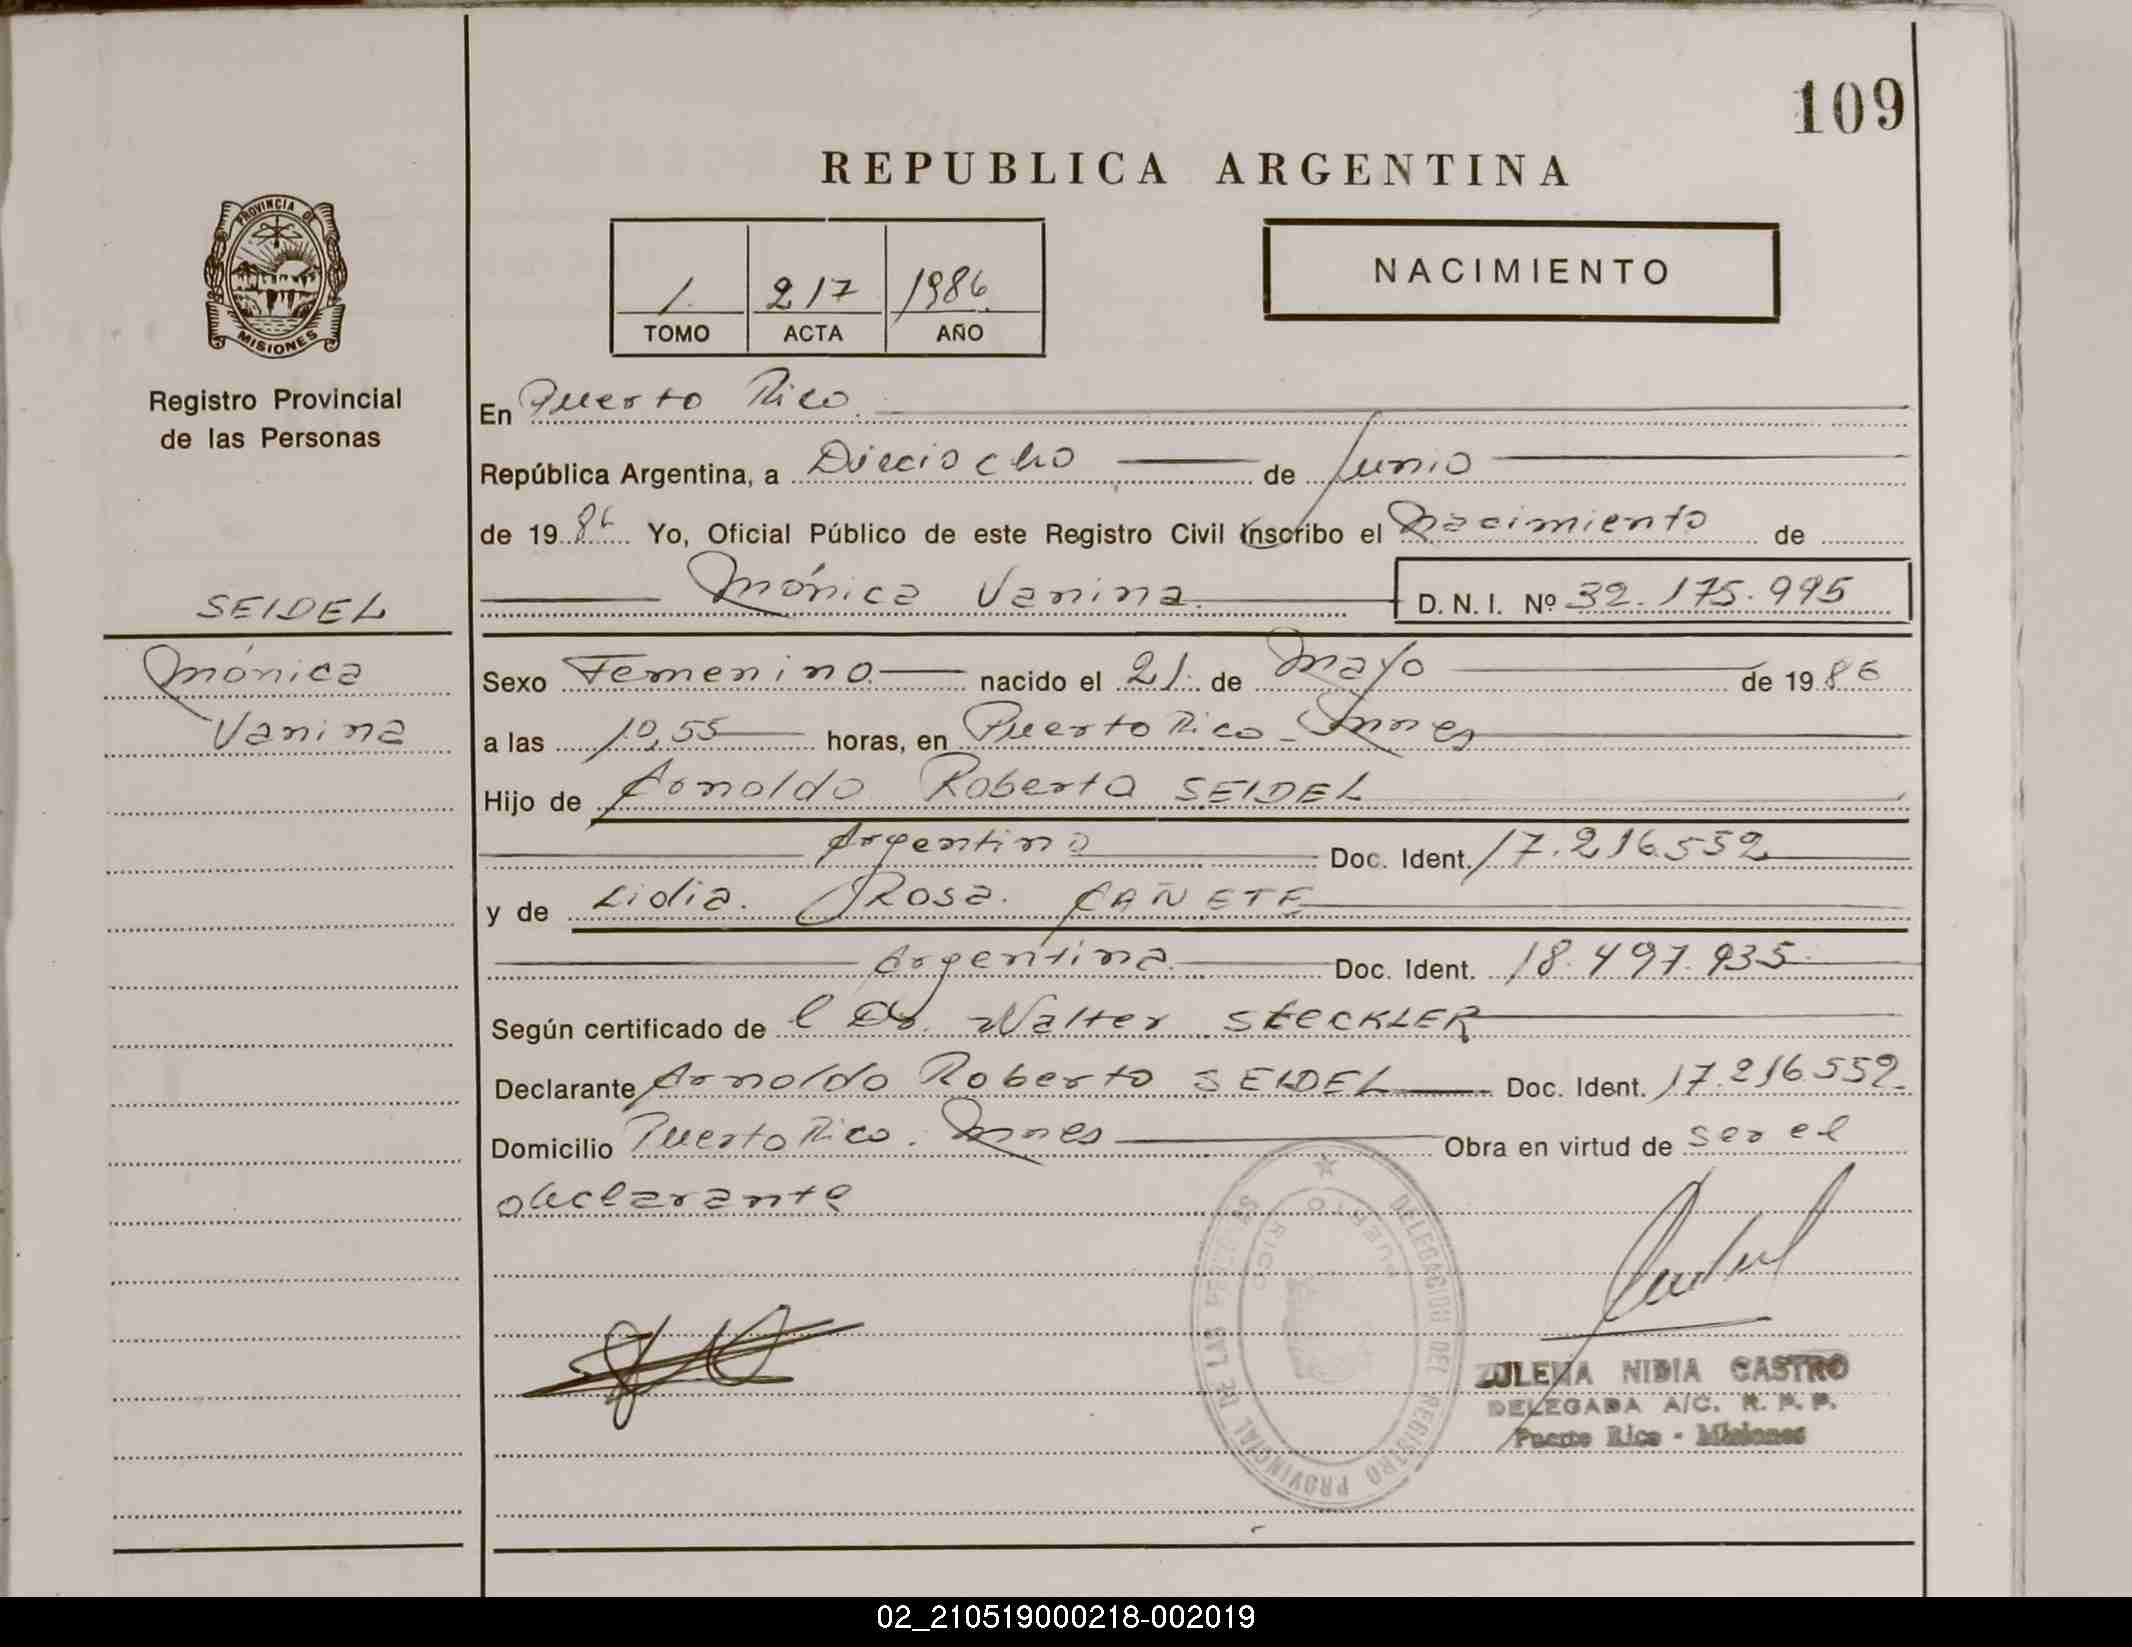 109
REPUBLICA ARGENTINA
PROVINCIA DE
MISIONES
Registro Provincial
de las Personas
1 217 1986
TOMO ACTA AÑO
NACIMIENTO
En Puerto Rico.
República Argentina, a Dieciocho de Junio
de 1986 Yo, Oficial Público de este Registro Civil inscribo el Nacimiento de
Mónica Vanina. D. N. I. Nº 32.175.995
SEIDEL
Mónica
Vanina
Sexo Femenino nacido el 21 de Mayo de 1986
a las 10,55 horas, en Puerto Rico - Mnes
Hijo de Arnoldo Roberto SEIDEL
Argentino Doc. Ident. 17.216.552
y de Lidia. Rosa. CAÑETE
Argentina Doc. Ident. 18.497.935
Según certificado de l Dr. Walter STECKLER
Declarante Arnoldo Roberto SEIDEL Doc. Ident. 17.216.552
Domicilio Puerto Rico. Mnes Obra en virtud de ser el
declarante
DELEGACION DEL REGISTRO PROVINCIAL DE LAS
PUERTO RICO
ZULEMA NIDIA CASTRO
DELEGADA A/C. R. P. P.
Puerto Rico - Misiones
02_210519000218-002019